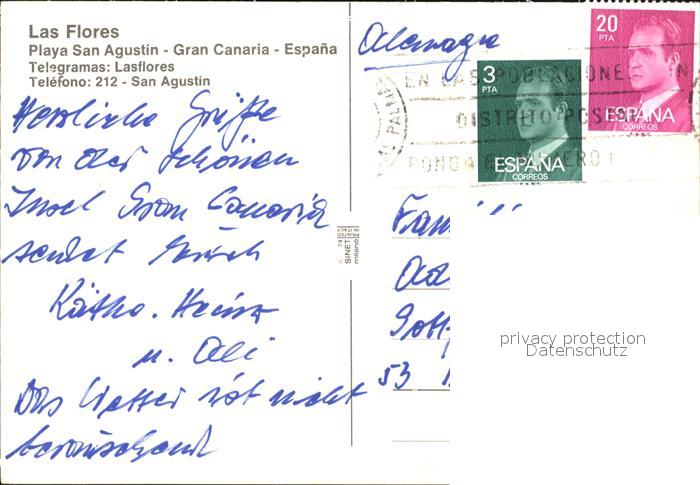 Las Flores
Playa San Agustín - Gran Canaria - España
Telegramas: Lasflores
Teléfono: 212 - San Agustín
Herzliche Grüße
von der schönen
Insel Gran Canaria
sendet Euch
Käthe. Heinz
u. Oli
Das Wetter ist nicht
berauschend
Alemagne
20
PTA
ESPAÑA
CORREOS
3
PTA
ESPAÑA
CORREOS
EN LAS POBLACIONES
DISTRITO POSTAL
PONGA
PRINTED
IN ITALY
SINET
milano
Fam
53
privacy protection
Datenschutz